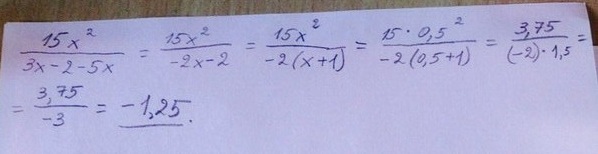 15x² / (3x-2-5x) = 15x² / (-2x-2) = 15x² / (-2(x+1)) = 15·0,5² / (-2(0,5+1)) = 3,75 / ((-2)·1,5) =
= 3,75 / (-3) = -1,25.